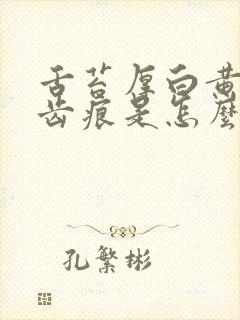 舌苔厚白黄
齿痕是怎麼
孔繁彬